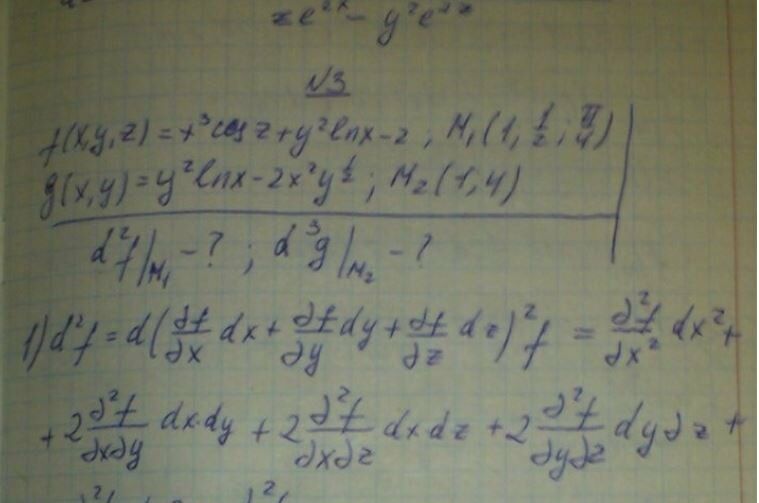 ze²ˣ - y²e
№3
f(x,y,z) = x³cos z + y² ln x - 2 ; M₁(1, 1/2 ; π/4)
g(x,y) = y² ln x - 2x²y^(1/2) ; M₂(1,4)
d²f|M₁ - ? ; d³g|M₂ - ?
1) d²f = d(∂f/∂x dx + ∂f/∂y dy + ∂f/∂z dz)² f = ∂²f/∂x² dx² +
+ 2 ∂²f/∂x∂y dx dy + 2 ∂²f/∂x∂z dx dz + 2 ∂²f/∂y∂z dy ∂z +